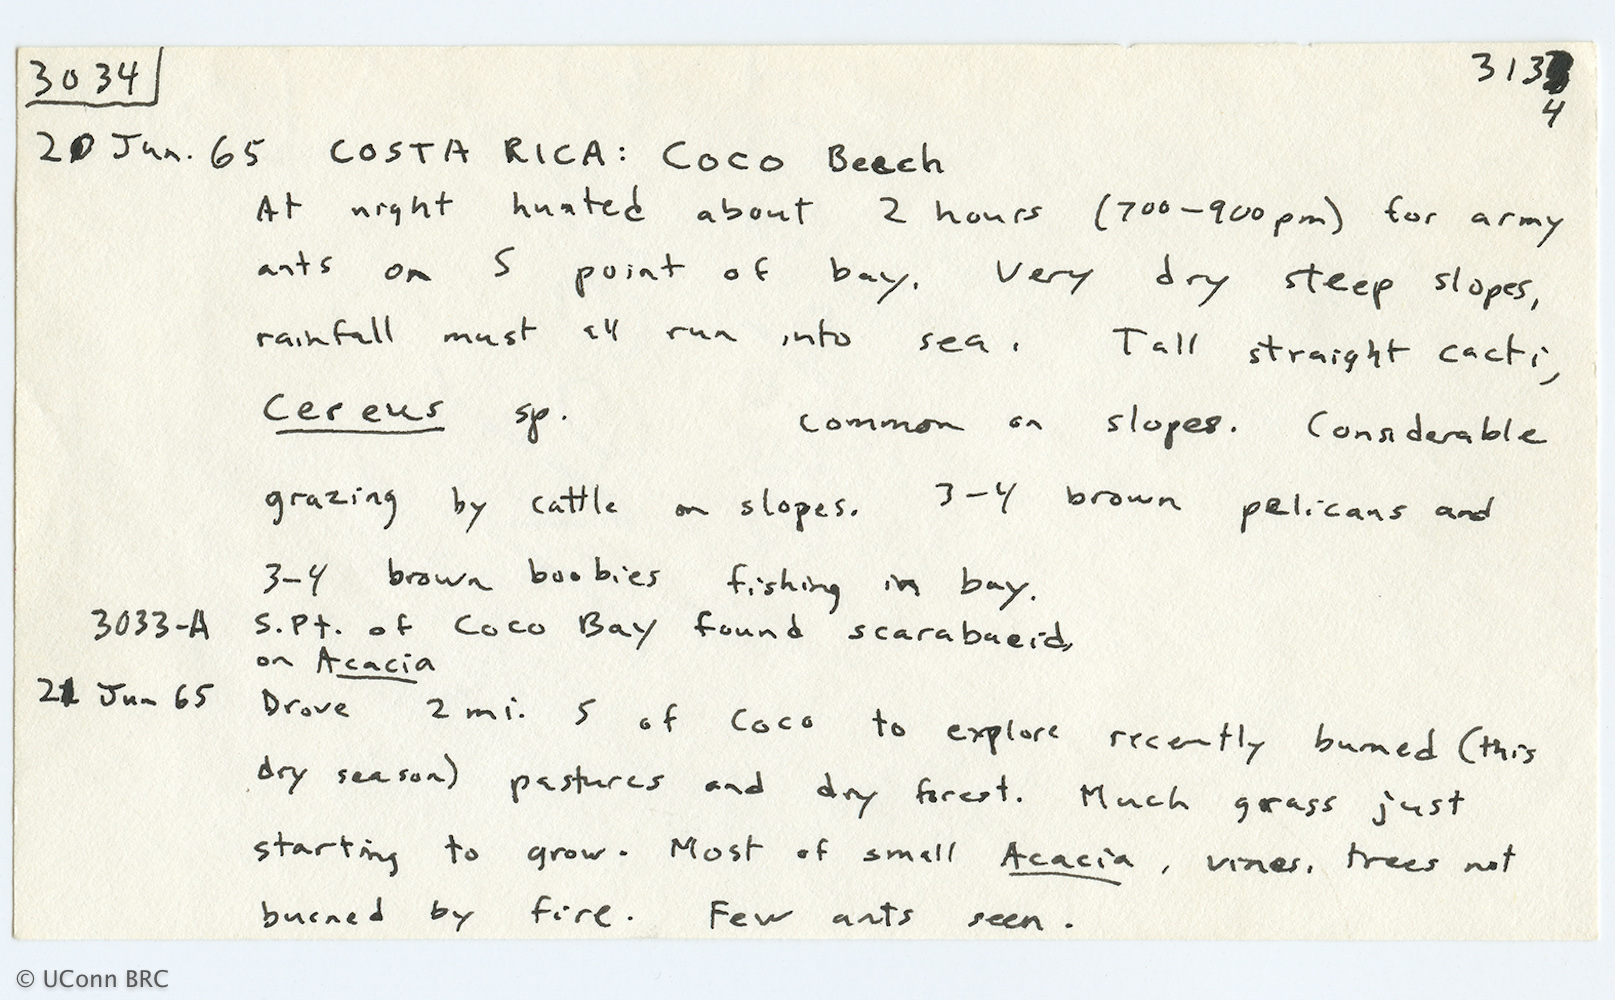 3034
3134
20 Jun. 65 COSTA RICA: Coco Beach
At night hunted about 2 hours (700-900pm) for army
ants on S point of bay. Very dry steep slopes,
rainfall must all run into sea. Tall straight cacti,
Cereus sp. common on slopes. Considerable
grazing by cattle on slopes. 3-4 brown pelicans and
3-4 brown boobies fishing in bay.
3033-A S.Pt. of Coco Bay found scarabaeid,
on Acacia
21 Jun 65 Drove 2 mi. S of Coco to explore recently burned (this
dry season) pastures and dry forest. Much grass just
starting to grow. Most of small Acacia, vines, trees not
burned by fire. Few ants seen.
© UConn BRC